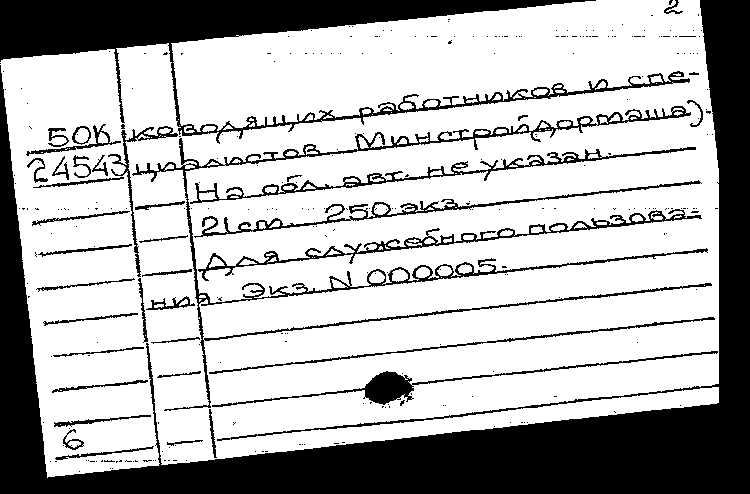 2
50К ководящих работников и спе-
24543 циалистов Минстройдормаша).
На обл. авт. не указан.
21cm. 250 экз.
Для служебного пользова-
ния. Экз. N 000005.
6